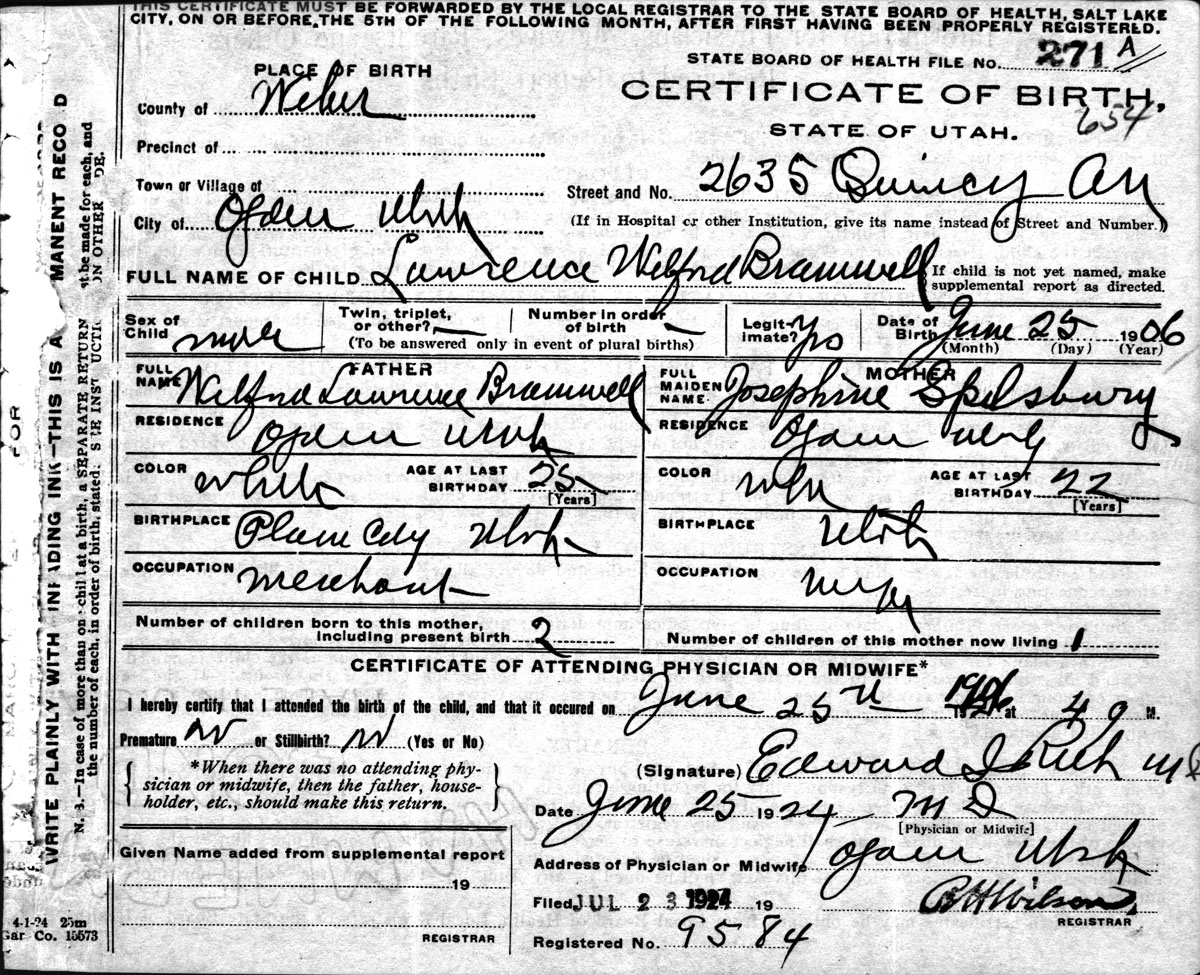 THIS CERTIFICATE MUST BE FORWARDED BY THE LOCAL REGISTRAR TO THE STATE BOARD OF HEALTH, SALT LAKE
CITY, ON OR BEFORE THE 5TH OF THE FOLLOWING MONTH, AFTER FIRST HAVING BEEN PROPERLY REGISTERED.
STATE BOARD OF HEALTH FILE No. 271 A
PLACE OF BIRTH
CERTIFICATE OF BIRTH,
654
County of Weber
STATE OF UTAH.
Precinct of
Town or Village of
Street and No. 2635 Quincy Av
City of Ogden Utah
(If in Hospital or other Institution, give its name instead of Street and Number.)
FULL NAME OF CHILD Lawrence Wilford Bramwell
If child is not yet named, make
supplemental report as directed.
Sex of Child male
Twin, triplet, or other?
Number in order of birth
(To be answered only in event of plural births)
Legitimate? Yes
Date of Birth June 25 1906
(Month) (Day) (Year)
FATHER
FULL NAME Wilford Lawrence Bramwell
RESIDENCE Ogden Utah
COLOR white
AGE AT LAST BIRTHDAY 25
[Years]
BIRTHPLACE Plain City Utah
OCCUPATION merchant
MOTHER
FULL MAIDEN NAME. Josephine Spilsbury
RESIDENCE Ogden Utah
COLOR
AGE AT LAST BIRTHDAY 22
[Years]
BIRTHPLACE Utah
OCCUPATION
Number of children born to this mother,
including present birth 2
Number of children of this mother now living 1
CERTIFICATE OF ATTENDING PHYSICIAN OR MIDWIFE*
I hereby certify that I attended the birth of the child, and that it occured on June 25th 1906 at 4 M.
Premature No or Stillbirth? No (Yes or No)
*When there was no attending phy-
sician or midwife, then the father, house-
holder, etc., should make this return.
(Signature) Edward I Rich MD
Date June 25 1924 MD
[Physician or Midwife]
Address of Physician or Midwife Ogden Utah
Given Name added from supplemental report
19
REGISTRAR
Filed JUL 23 1924 19
Wilson
REGISTRAR
Registered No. 9584
4-1-24 25m
Gar Co. 15573
WRITE PLAINLY WITH UNFADING INK—THIS IS A MANENT RECO D
N. B.—In case of more than one child at a birth, a SEPARATE RETURN must be made for each, and
the number of each, in order of birth, stated.
FOR